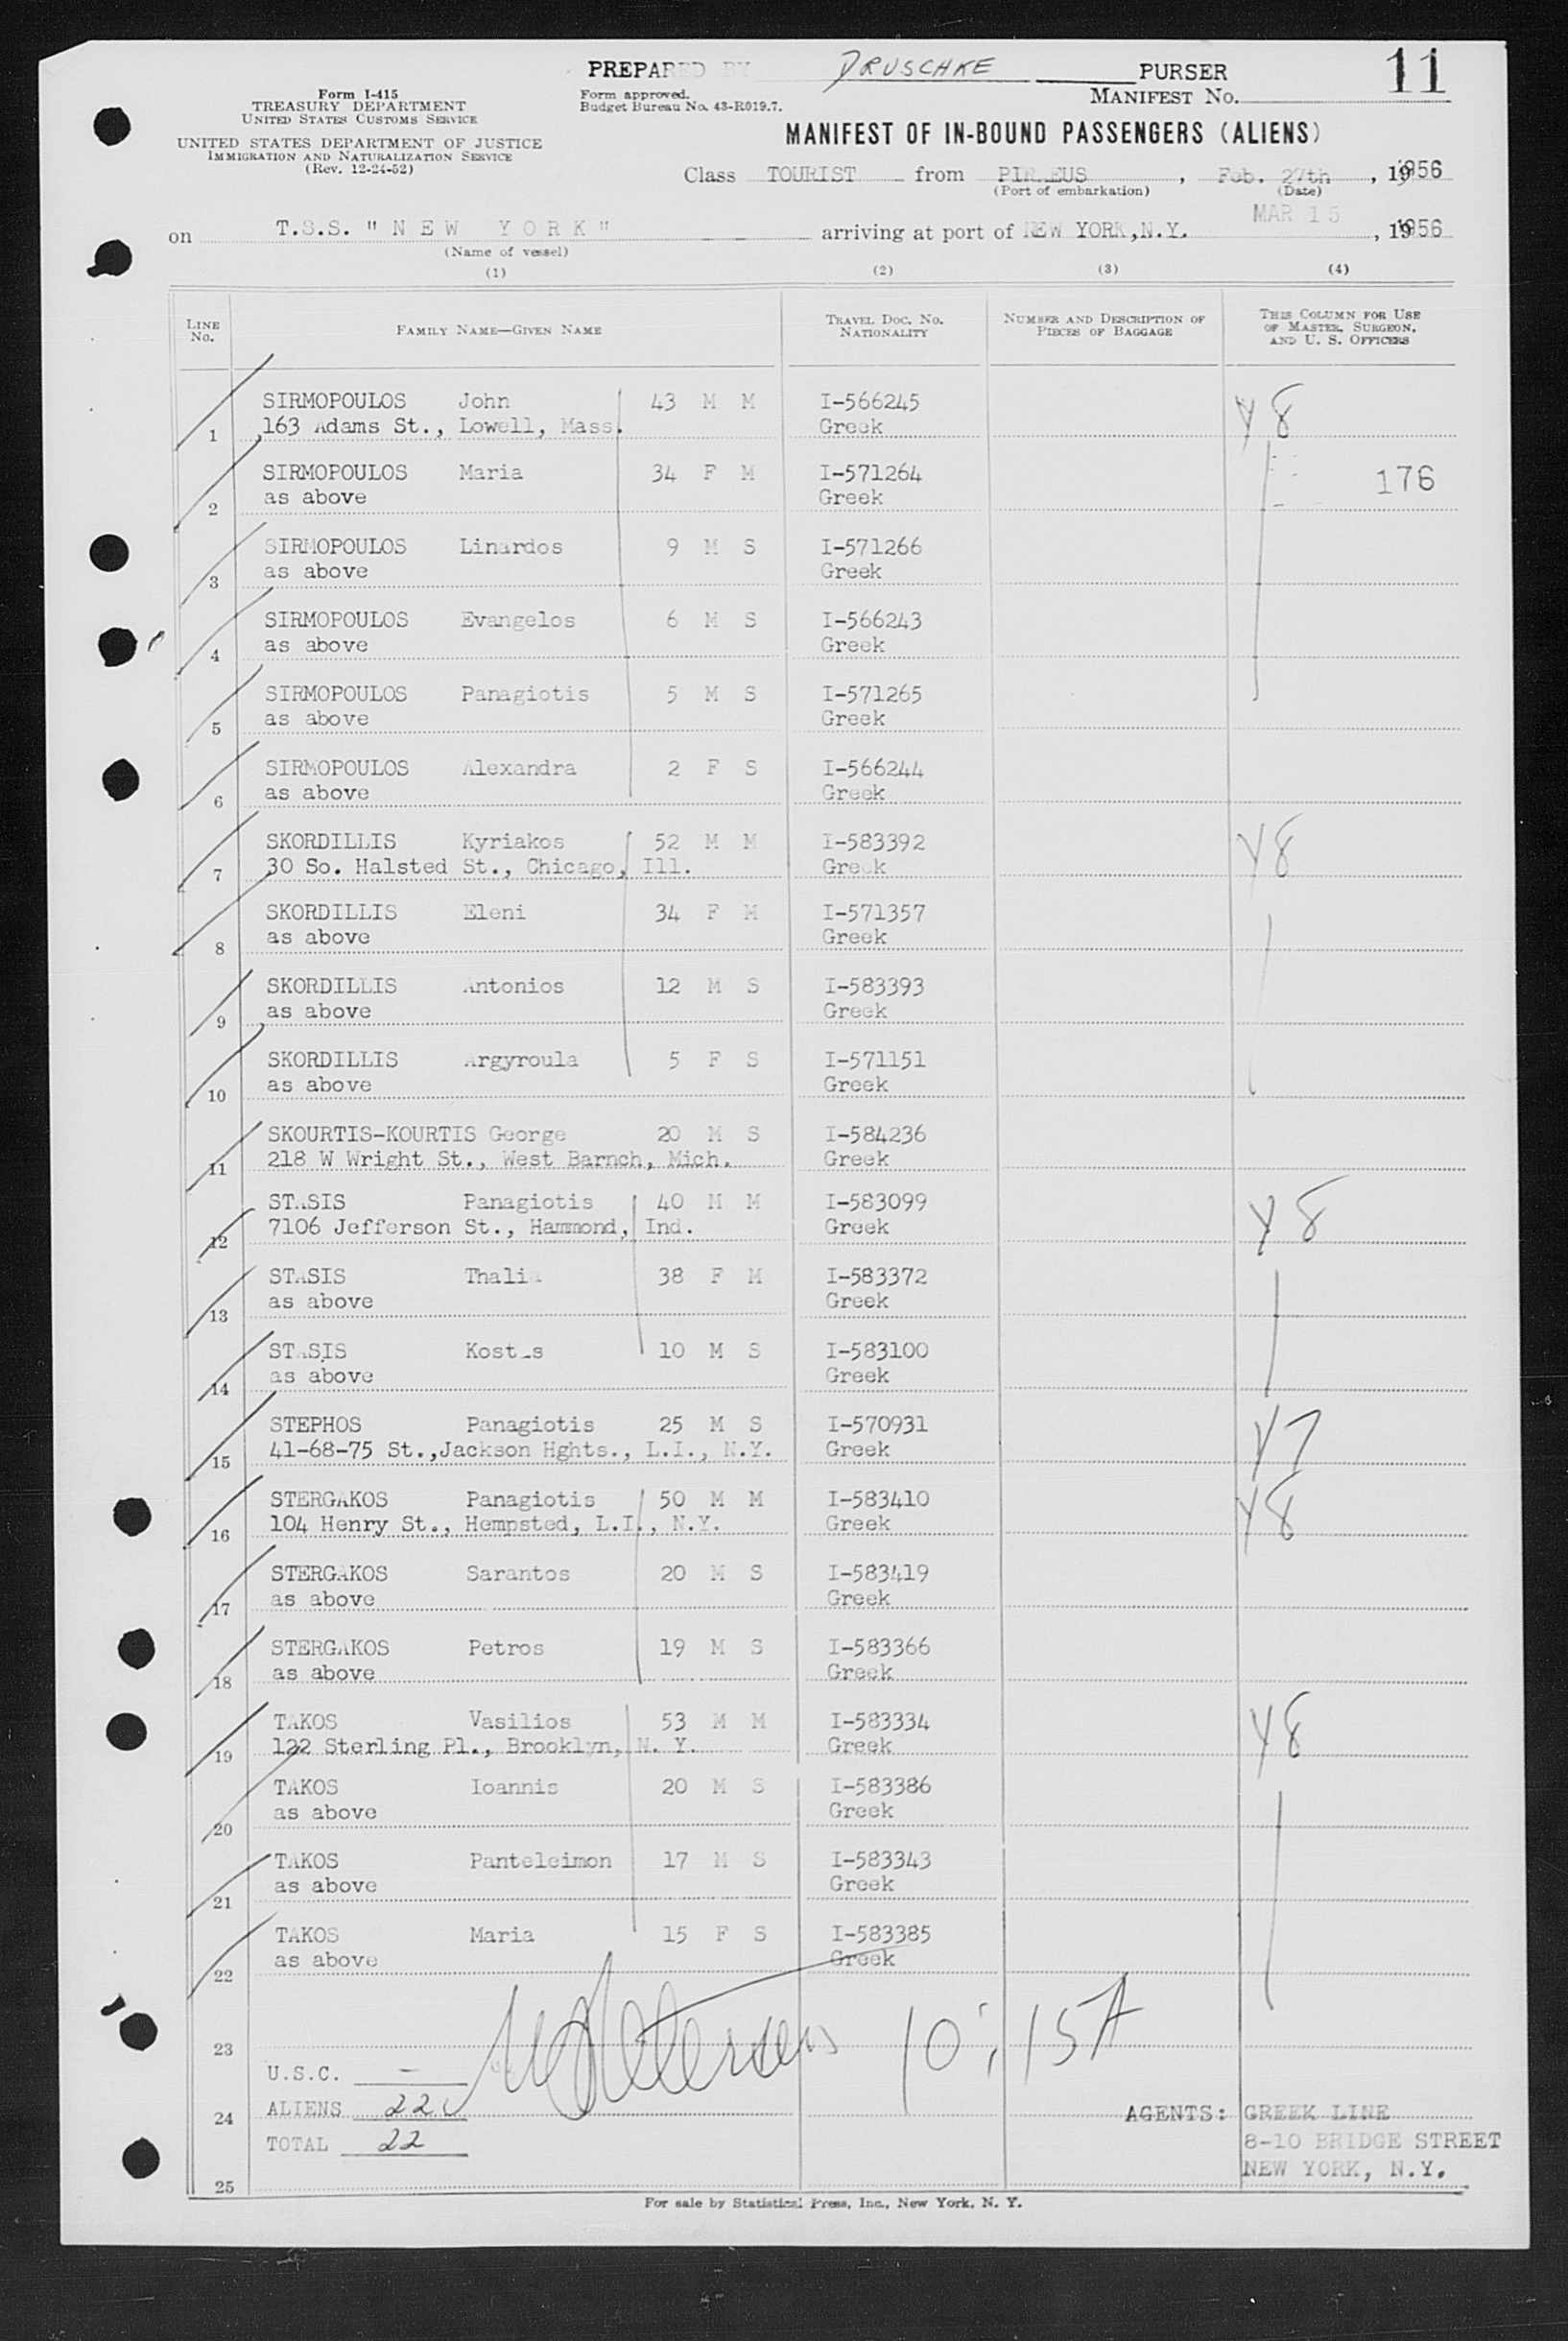 PREPARED BY DRUSCHKE PURSER 11
Form I-415
TREASURY DEPARTMENT
UNITED STATES CUSTOMS SERVICE
UNITED STATES DEPARTMENT OF JUSTICE
IMMIGRATION AND NATURALIZATION SERVICE
(Rev. 12-24-52)
Form approved.
Budget Bureau No. 43-R019.7.
MANIFEST NO.
MANIFEST OF IN-BOUND PASSENGERS (ALIENS)
Class TOURIST from PIRAEUS , Feb. 27th , 1956
(Port of embarkation) (Date)
on T.S.S. "NEW YORK" arriving at port of NEW YORK, N.Y. MAR 15 , 1956
(Name of vessel)
(1) (2) (3) (4)
LINE No. FAMILY NAME—GIVEN NAME TRAVEL DOC. NO. NATIONALITY NUMBER AND DESCRIPTION OF PIECES OF BAGGAGE THIS COLUMN FOR USE OF MASTER, SURGEON, AND U. S. OFFICERS
SIRMOPOULOS John 43 M M I-566245 Y8
1 163 Adams St., Lowell, Mass. Greek
SIRMOPOULOS Maria 34 F M I-571264 176
2 as above Greek
SIRMOPOULOS Linardos 9 M S I-571266
3 as above Greek
SIRMOPOULOS Evangelos 6 M S I-566243
4 as above Greek
SIRMOPOULOS Panagiotis 5 M S I-571265
5 as above Greek
SIRMOPOULOS Alexandra 2 F S I-566244
6 as above Greek
SKORDILLIS Kyriakos 52 M M I-583392 Y8
7 30 So. Halsted St., Chicago, Ill. Greek
SKORDILLIS Eleni 34 F M I-571357
8 as above Greek
SKORDILLIS Antonios 12 M S I-583393
9 as above Greek
SKORDILLIS Argyroula 5 F S I-571151
10 as above Greek
SKOURTIS-KOURTIS George 20 M S I-584236
11 218 W Wright St., West Barnch, Mich. Greek
STASIS Panagiotis 40 M M I-583099 Y8
12 7106 Jefferson St., Hammond, Ind. Greek
STASIS Thalia 38 F M I-583372
13 as above Greek
STASIS Kostas 10 M S I-583100
14 as above Greek
STEPHOS Panagiotis 25 M S I-570931 Y7
15 41-68-75 St.,Jackson Hghts., L.I., N.Y. Greek
STERGAKOS Panagiotis 50 M M I-583410 Y8
16 104 Henry St., Hempsted, L.I., N.Y. Greek
STERGAKOS Sarantos 20 M S I-583419
17 as above Greek
STERGAKOS Petros 19 M S I-583366
18 as above Greek
TAKOS Vasilios 53 M M I-583334 Y8
19 122 Sterling Pl., Brooklyn, N. Y. Greek
TAKOS Ioannis 20 M S I-583386
20 as above Greek
TAKOS Panteleimon 17 M S I-583343
21 as above Greek
TAKOS Maria 15 F S I-583385
22 as above Greek
23 10:15A
U.S.C. —
24 ALIENS 22 AGENTS: GREEK LINE
TOTAL 22 8-10 BRIDGE STREET
25 NEW YORK, N.Y.
For sale by Statistical Press, Inc., New York, N. Y.